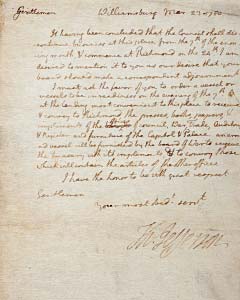 Gentlemen Williamsburg Mar 23 1780
It having been concluded that the Council shall dis
continue business at this place from the 7th of the ensu
ing month & commence at Richmond on the 24th I am
desired to mention it to you as our desire that your
board should make a correspondent adjournment.
I must ask the favor of you to order a vessel or
vessels to be in readiness on the evening of the 7th
at the landing most convenient to this place to receive
& convey to Richmond the presses, books, papers &
implements of the offices of Council, War, Trade, Auditors
& the furniture of the Capitol & Palace. an arm
ed vessel will be furnished by the board of War to receive
the treasury with its implements & to convoy those
which will contain the articles of the other offices
I have the honor to be with great respect
Gentlemen
your most hed. servt.
Th: Jefferson